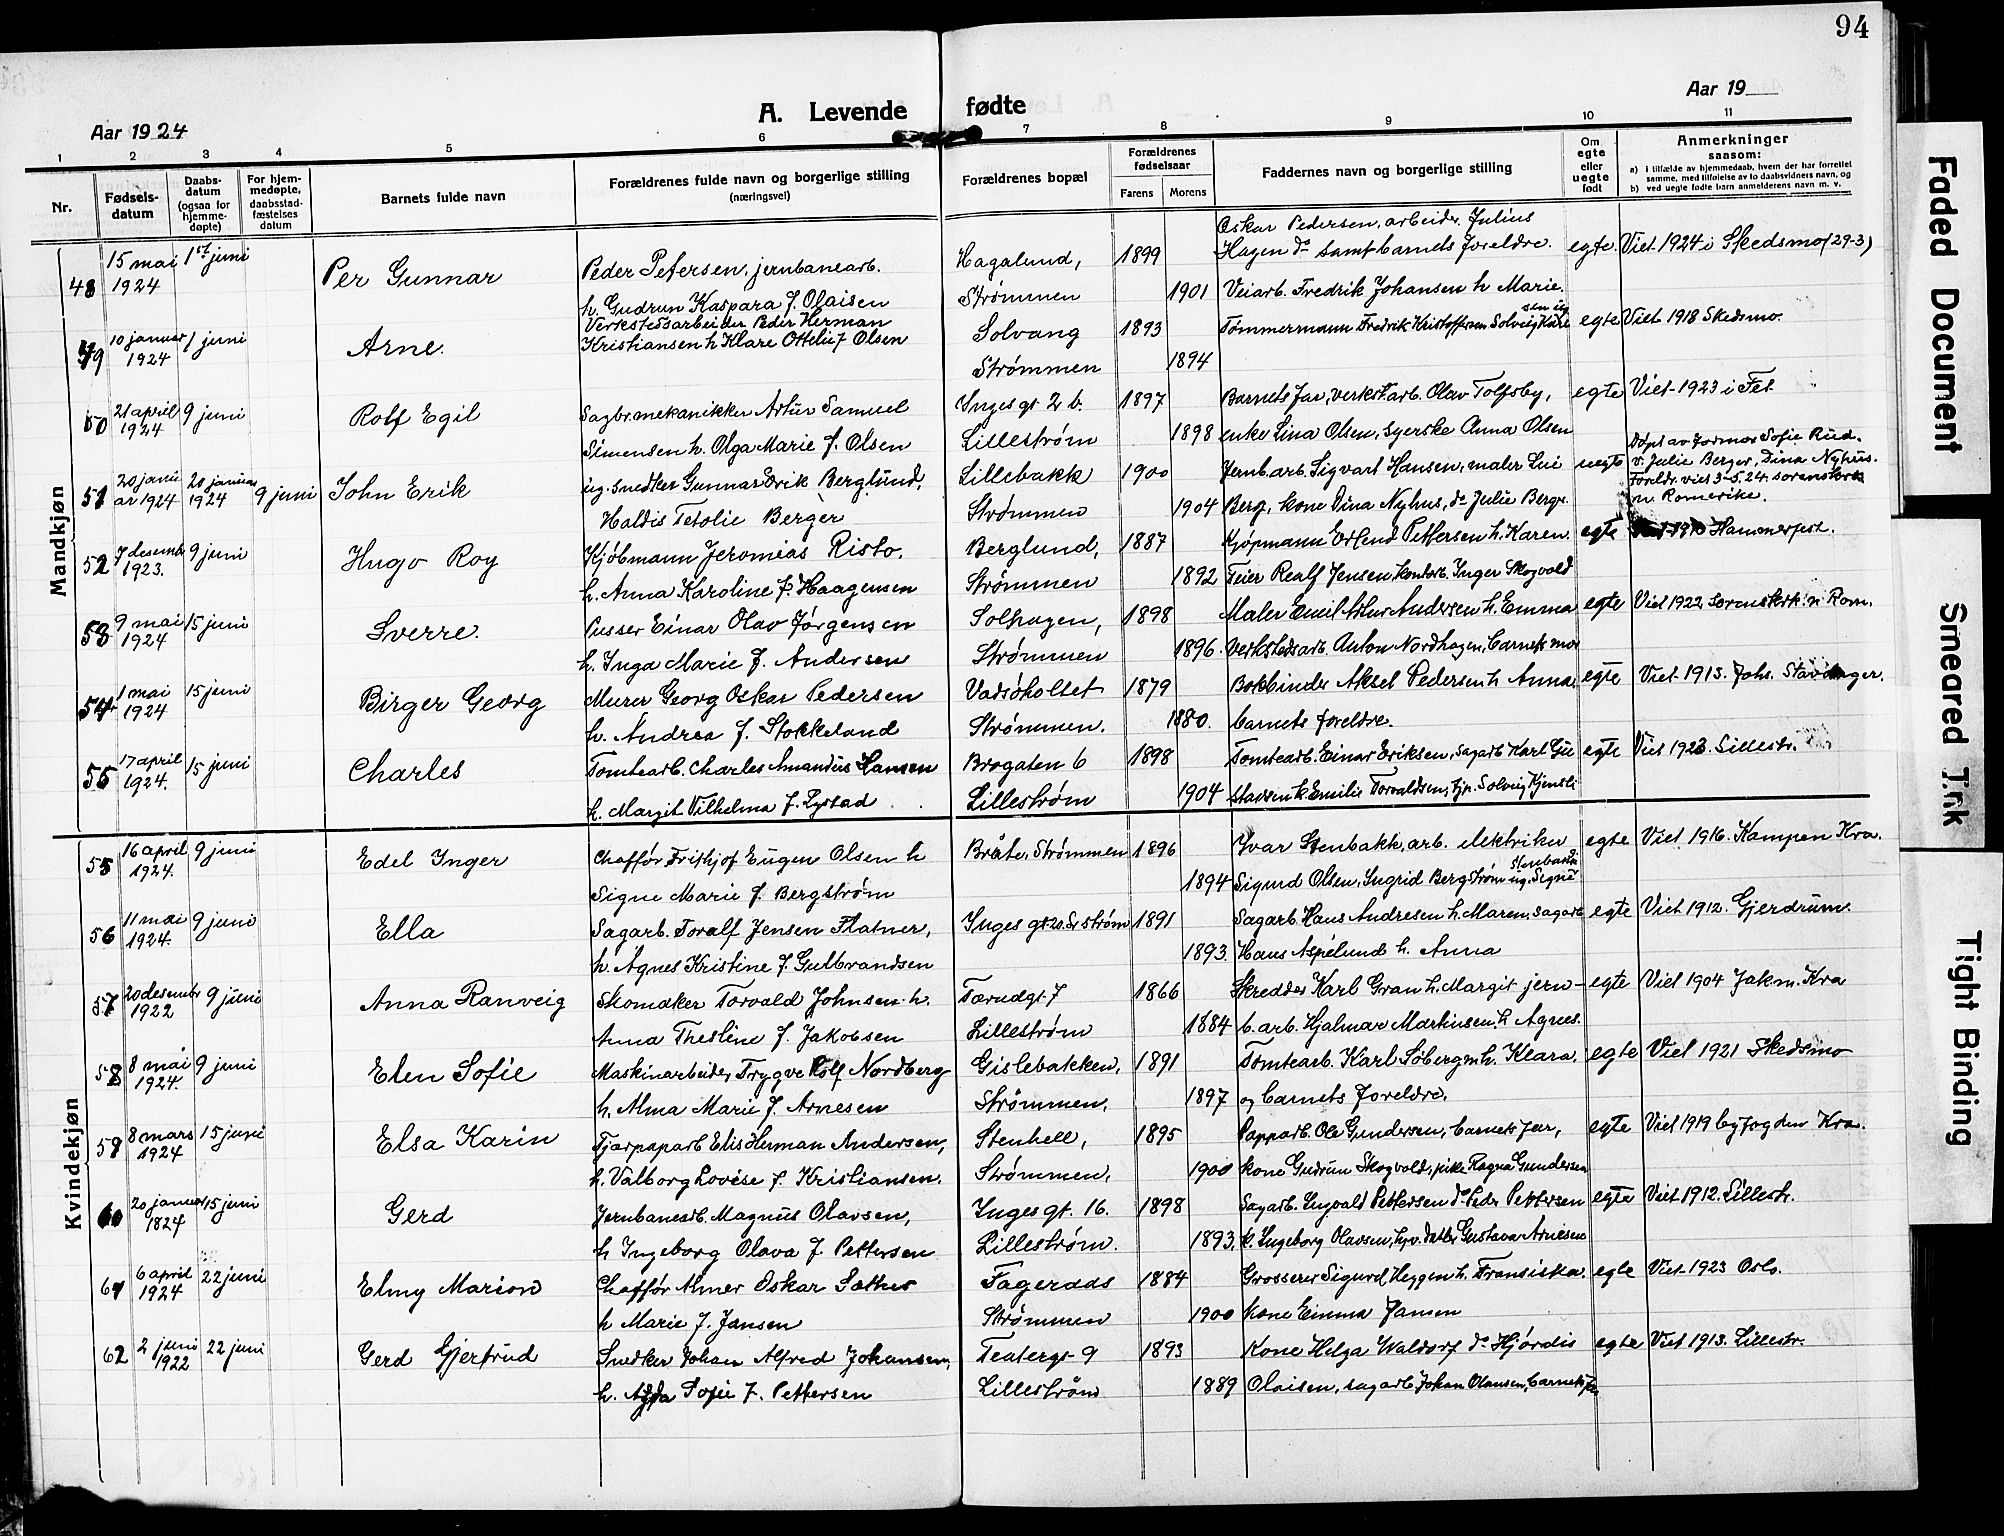 94
Aar 1924
A. Levende fødte
Aar 19
1 2 3 4 5 6 7 8 9 10 11
Nr.
Fødsels-
datum
Daabs-
datum
(ogsaa for
hjemme-
døpte)
For hjem-
medøpte,
daabsstad-
fæstelses
datum
Barnets fulde navn
Forældrenes fulde navn og borgerlige stilling
(næringsvei)
Forældrenes bopæl
Forældrenes
fødselsaar
Farens Morens
Faddernes navn og borgerlige stilling
Om
egte
eller
uegte
født
Anmerkninger
saasom:
a) I tilfælde av hjemmedaab, hvem der har forrettet
samme, med tilføielse av to daabsvidners navn, og
b) ved uegte fødte barn anmelderens navn m. v.
Mandkjøn
Oskar Pedersen, arbeider, Julius
48 15 mai 1st juni Per Gunnar Peder Petersen, jernbanearb. Hagalund, 1899 Hagen do samt barnets foreldre. egte Viet 1924 i Skedsmo (29-3)
1924 h. Gudrun Kaspara f. Olaisen Strømmen 1901 Veiarb. Fredrik Johansen h Marie.
49 10 januar 1 juni Arne. Verkstedsarbeider Peder Herman Solvang 1893 Tømmermann Fredrik Kristoffersen Solveig Klare egte Viet 1918 Skedsmo.
1924 Kristiansen h Klare Ottelie f Olsen Strømmen 1894
50 21 april 9 juni Rolf Egil Sagbr.mekanikker Artur Samuel Inges gt 2 b. 1897 Barnets far, verkst.arb. Olav Tolfsby, egte Viet 1923 i Fet
1924 Simensen h. Olga Marie f. Olsen Lillestrøm 1898 enke Lina Olsen, syerske Anna Olsen
51 20 janu 20 januar 9 juni John Erik ug. Snedker Gunnar Erik Berglund, Lillebakk 1900 Jernb.arb. Sigvart Hansen, maler Lui uegte Døpt av Jormor Sofie Rud.
ar 1924 1924 Haldis Tetolie Berger Strømmen 1904 Berg, kone Dina Nyhus, do Julie Berger. v. Julie Berger, Dina Nyhus.
Foreldr. viet 3-5.24. sorenskr.
n. Romerike.
52 7 desembr 9 juni Hugo Roy Kjøbmann Jeromias Risto. Berglund, 1887 Kjøpmann Erlend Pettersen h. Karen. egte 1910 Hammerfest.
1923. h. Anna Karoline f. Haagensen Strømmen 1892 Feier Realf Jensen kontorb. Inger Skogvold
53 9 mai 15 juni Sverre. Pusser Einar Olav Jørgensen Solhagen, 1898 Maler Emil Artur Andersen h. Emma egte Viet 1922 Sorenskr. n Rom.
1924 h. Inga Marie f. Andersen Strømmen 1896. Verkstedsarb. Anton Nordhagen, barnets mor
54 1 mai 15 juni Birger Georg Murer Georg Oskar Pedersen Vadsøholtet 1879 Bokbinder Aksel Pedersen h Anna, egte Viet 1915. Johs. Stavanger.
1924 h. Andrea f. Stokkeland Strømmen. 1880. barnets foreldre.
55 17 april 15 juni Charles Tomtearb. Charles Amandus Hansen Brogaten 6 1898 Tomtearb. Einar Eriksen, sagarb Karl Gu egte Viet 1923. Lillestr.
1924. h. Margit Vilhelma f. Rystad Lillestrøm 1904 stavsen k. Emilie Torvaldsen, tjp. Solveig Kjensli
Kvindekjøn
55 16 april 9 juni Edel Inger Chaffør Frithjof Eugen Olsen h Bråte, Strømmen 1896 Yvar Stenbakk, arb. elektriker egte Viet 1916. Kampen Kra.
1924. Signe Marie f. Bergstrøm 1894 Sigurd Olsen, Ingrid Bergstrøm ug. Signe Stenbakk
56 11 mai 9 juni Ella Sagarb. Toralf Jensen Flatner, Inges gt 20. Lr strøm 1891 Sagarb. Hans Andresen h. Maren, sagarb egte Viet 1912. Gjerdrum.
1924. h. Agnes Kristine f. Gulbrandsen 1893. Hans Aspelund h. Anna
57 20 desembr 9 juni Anna Ranveig Skomaker Torvald Johnsen h. Tærudgt 7 1866 Skredder Karl Gran h. Margit jern- egte Viet 1904 Jak m. Kra
1922 Anna Thesline f. Jakobsen Lillestrøm 1884 b. arb. Hjalmar Martinsen. h Agnes.
58 8 mai 9 juni Elen Sofie Maskinarbeider Trygve Rolf Nordberg Gislebakken, 1891 Tomtearb. Karl Søbergm h. Klara. egte Viet 1921 Skedsmo
1924. h. Alma Marie f. Arnesen Strømmen, 1897 og barnets foreldre.
59 8 mars 15 juni Elsa Karin Tjærpaparb Elis Herman Andersen, Stenhell, 1895 Papparb. Ole Gundersen, barnets far, egte Viet 1919 byfogden Kra.
1924 h. Valborg Lovise f. Kristiansen. Strømmen, 1900 kone Gudrun Skogvold, pike Ragna Gundersen
60 20 januar 15 juni Gerd Jernbanearb. Magnus Olavsen, Inges gt. 16. 1898 Sagarb. Ingvald Pettersen do Peder Pettersen egte Viet 1912. Lillestr.
1824 h Ingeborg Olava f. Pettersen Lillestrøm. 1893. k. Ingeborg Olavsen, Gustava Arnesen
61 6 april 22 juni Elmy Marion Chaffør Almer Oskar Sæther Fageraas 1884 Grosserer Sigurd Heggen h. Fransiska. egte Viet 1923 Oslo.
1924 h Marie f. Jansen Strømmen 1900 Kone Emma Jansen
62 2 juni 22 juni Gerd Gjertrud Snedker Johan Alfred Johansen, Teatergt 9 1893 Kone Helga Waldorf do Hjørdis egte Viet 1913. Lillestr.
1922 h. Agda Sofie f. Pettersen Lillestrøm 1889 Olaisen, sagarb. Johan Olausen, barnets far
Faded Document
Smeared Ink
Tight Binding